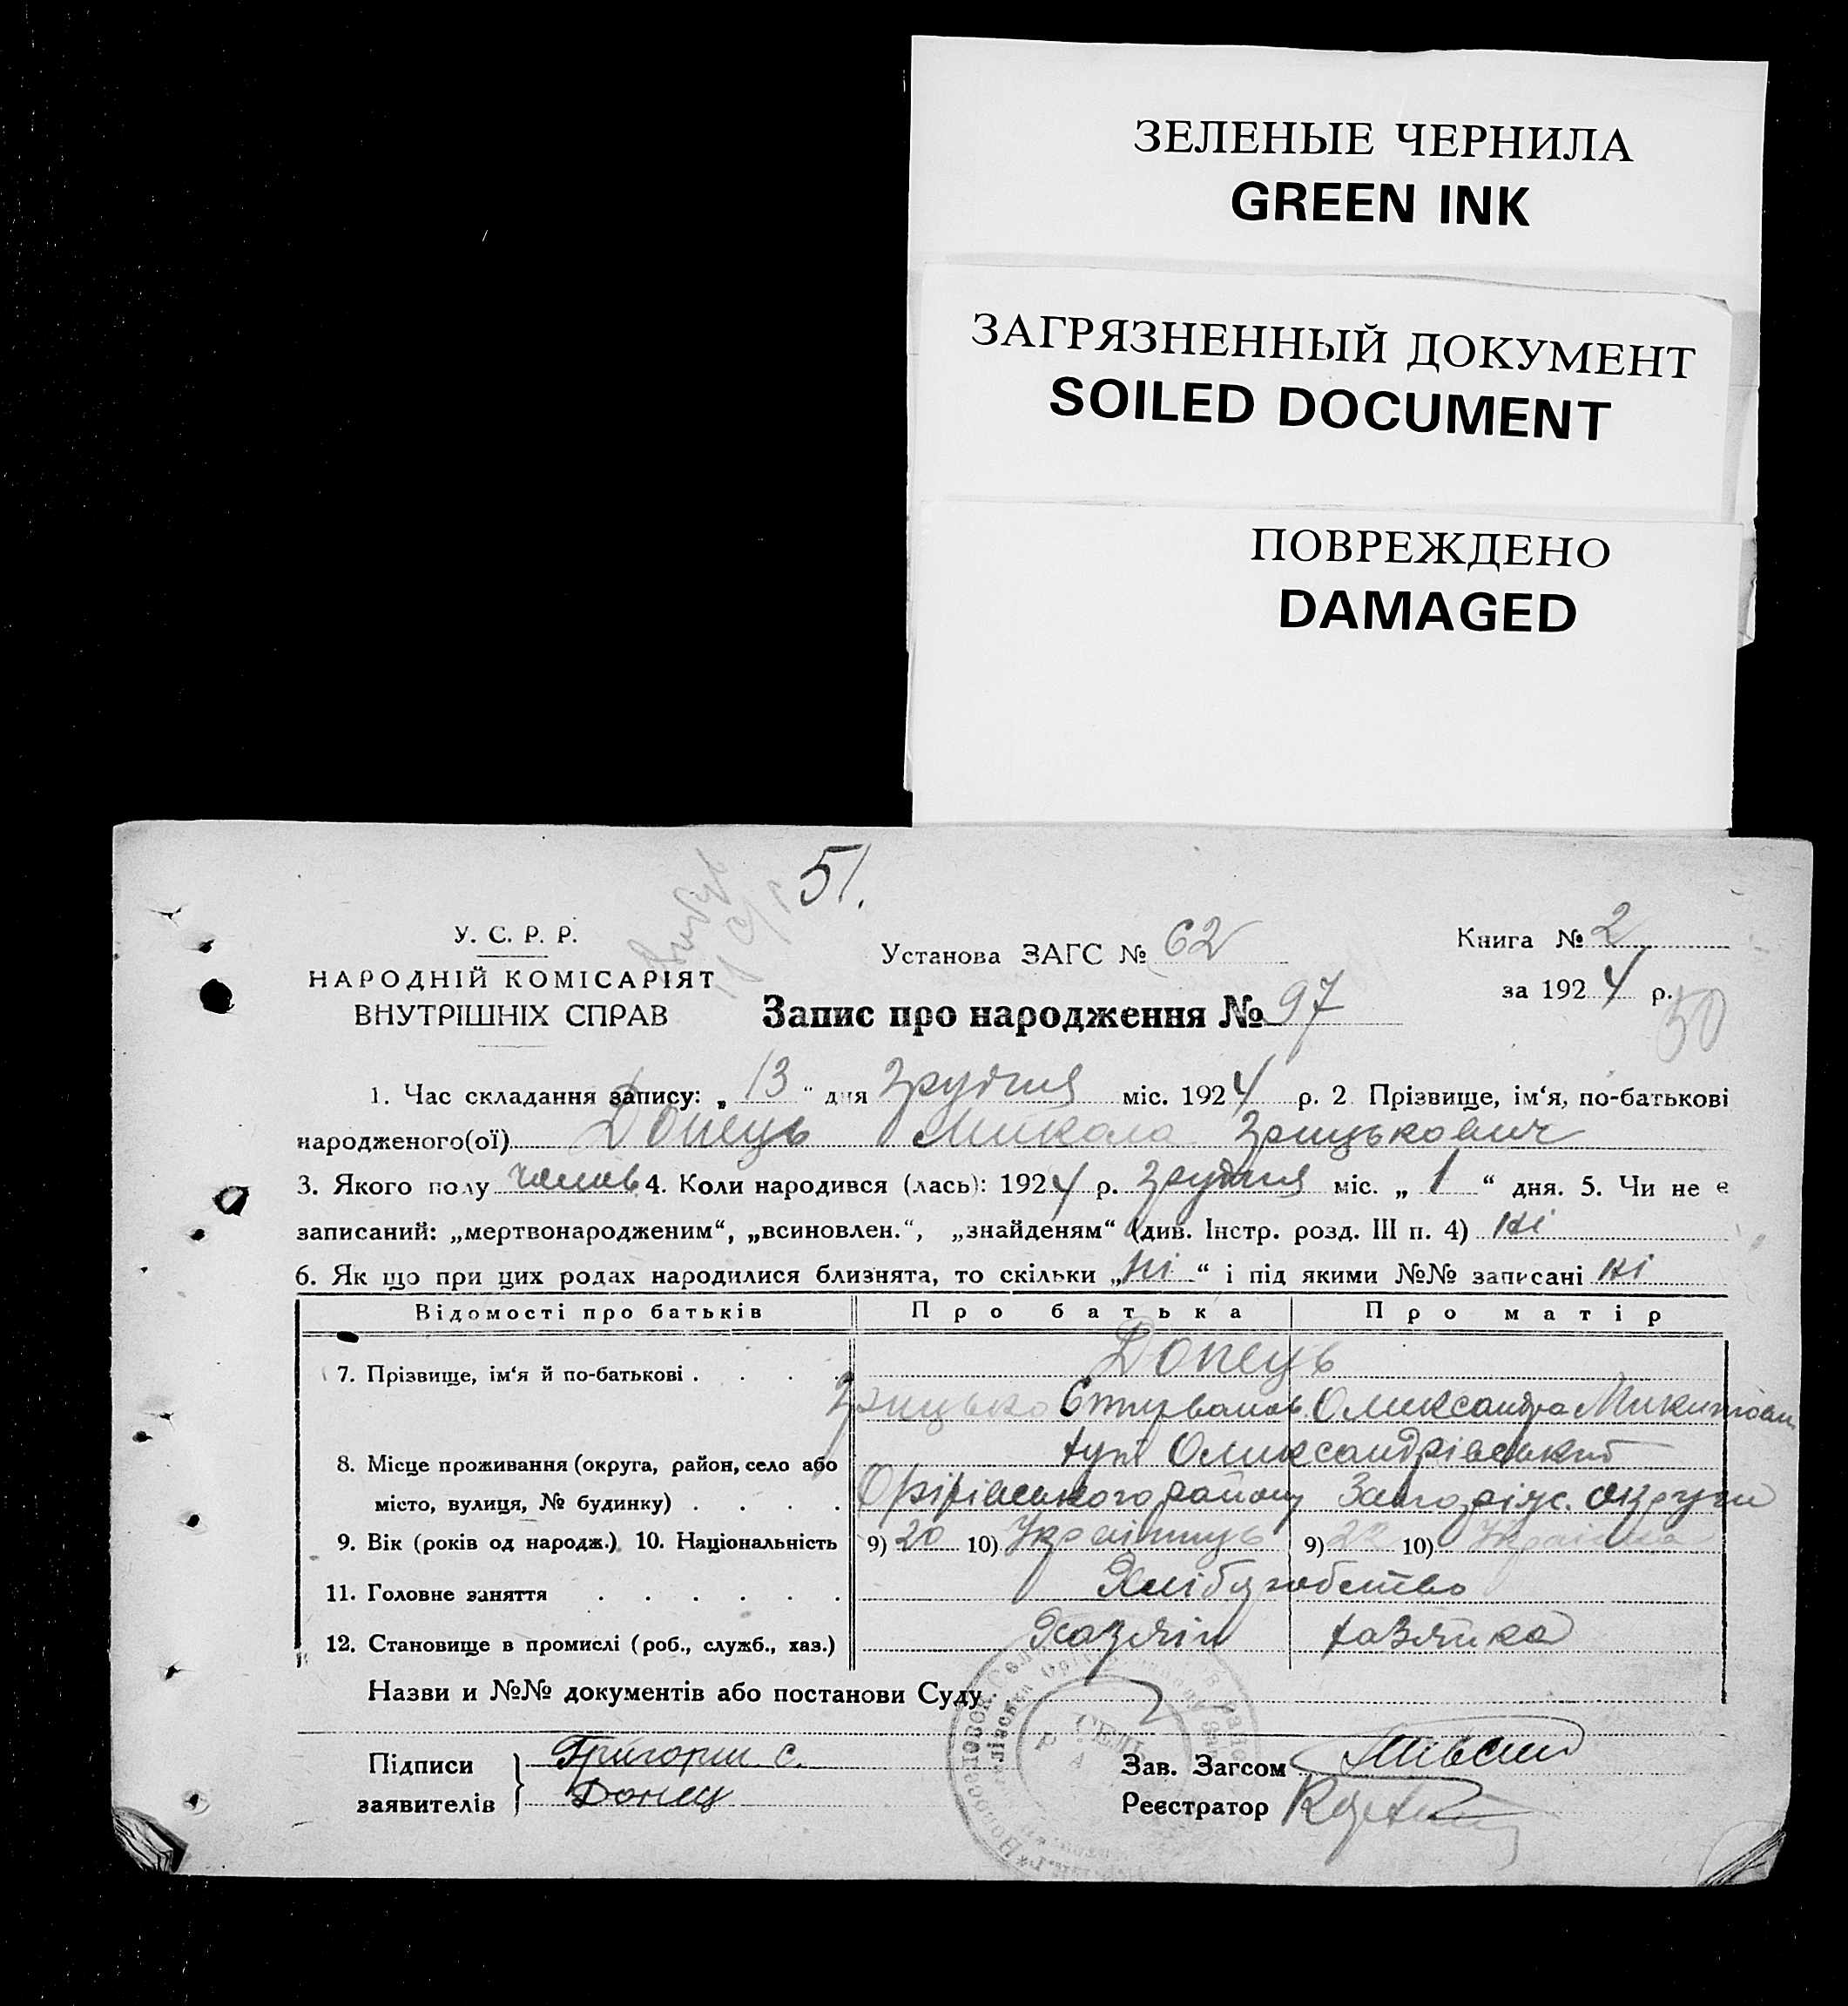 ЗЕЛЕНЫЕ ЧЕРНИЛА
GREEN INK
ЗАГРЯЗНЕННЫЙ ДОКУМЕНТ
SOILED DOCUMENT
ПОВРЕЖДЕНО
DAMAGED
51.
У. С. Р. Р.
НАРОДНІЙ КОМІСАРІЯТ
ВНУТРІШНІХ СПРАВ
Установа ЗАГС № 62
Книга № 2
за 1924 р.
Запис про народження № 97
50
1. Час складання запису: „13“ дня Грудня міс. 1924 р. 2 Прізвище, ім‘я, по-батькові
народженого(ої) Донець Микола Грицькович
3. Якого полу чолов 4. Коли народився (лась): 1924 р. Грудня міс. „1“ дня. 5. Чи не є
записаний: „мертвонародженим“, „всиновлен.“, „знайденям“ (див. Інстр. розд. III п. 4) ні
6. Як що при цих родах народилися близнята, то скільки „ні“ і під якими №№ записані ні
Відомості про батьків Про батька Про матір
7. Прізвище, ім‘я й по-батькові . . . . Донець
Грицько Олександра
8. Місце проживання (округа, район, село або Олександрівський
місто, вулиця, № будинку) . . . . району Запоріж. округи
9. Вік (років од народж.) 10. Національність 9) 20 10) Українець 9) 22 10) Українка
11. Головне заняття . . . . . . Хлібробство
12. Становище в промислі (роб., служб., хаз.) Хазяїн хазяйка
Назви и №№ документів або постанови Суду
Підписи Григорий С.
заявителів Донец
Зав. Загсом
Реєстратор